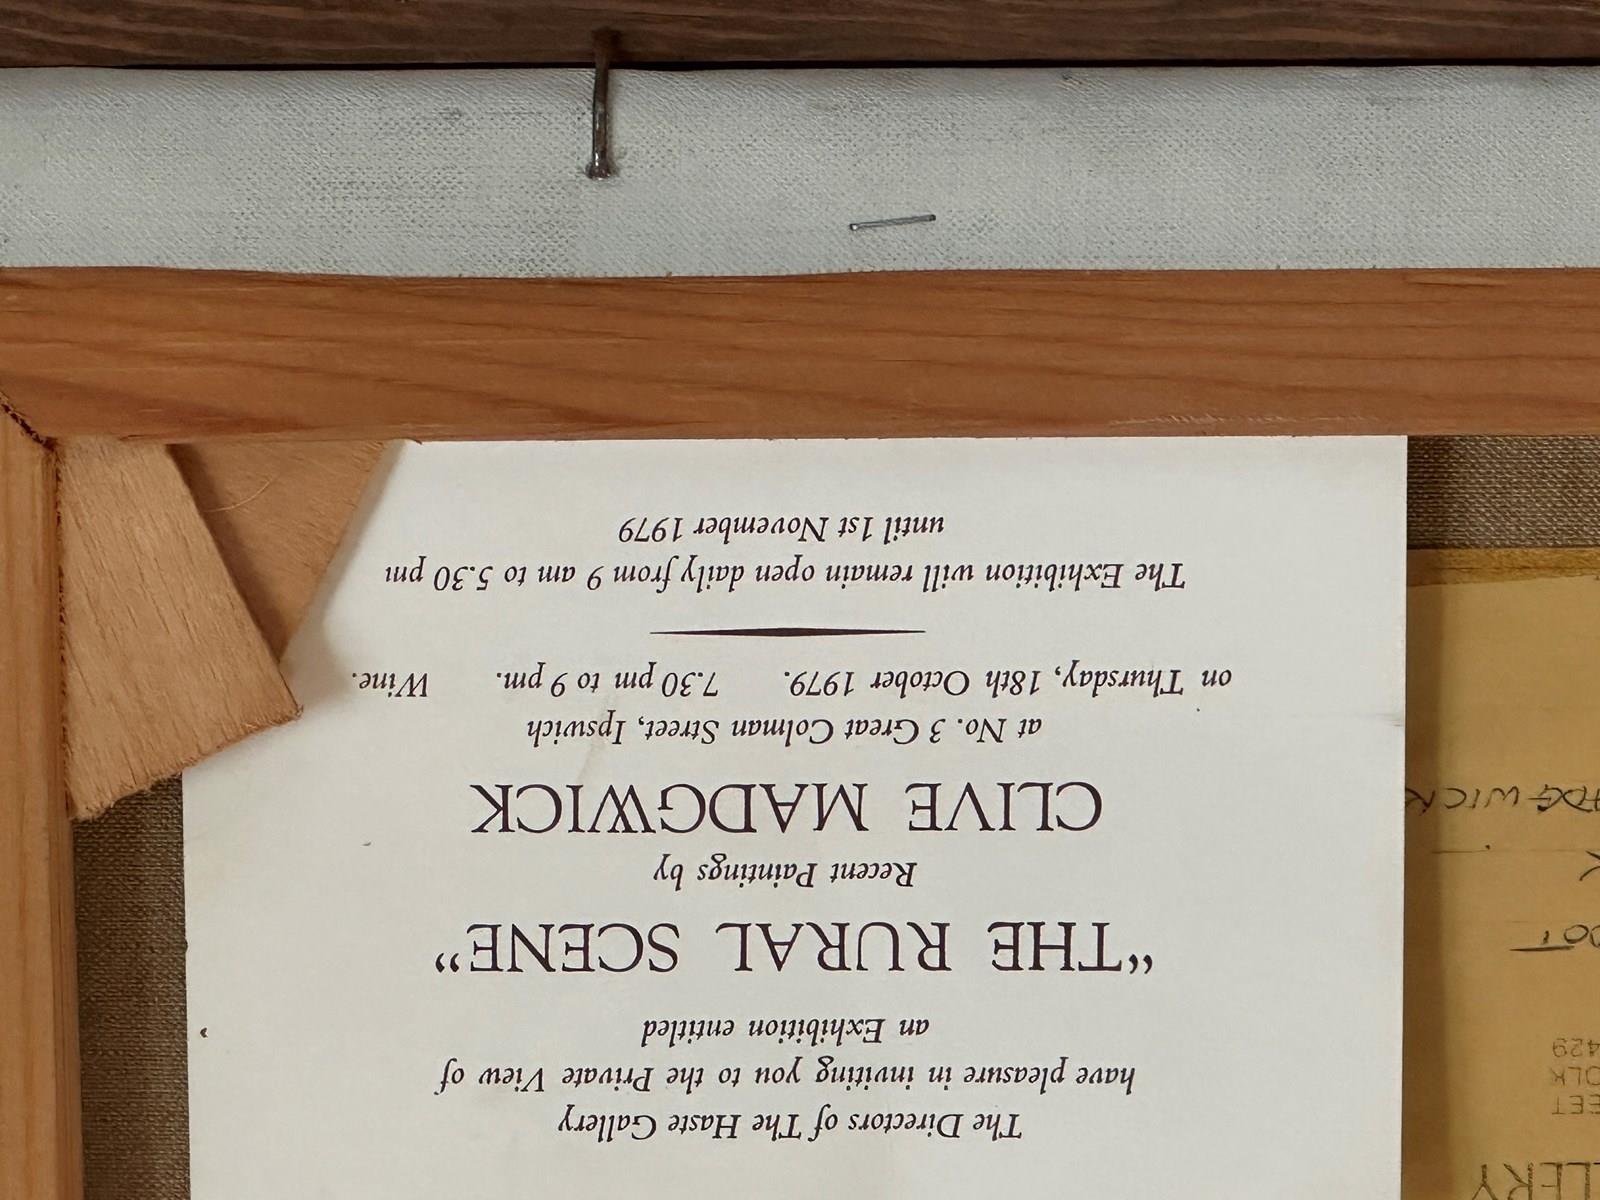 The Directors of The Haste Gallery
have pleasure in inviting you to the Private View of
an Exhibition entitled
“THE RURAL SCENE”
Recent Paintings by
CLIVE MADGWICK
at No. 3 Great Colman Street, Ipswich
on Thursday, 18th October 1979. 7.30 pm to 9 pm. Wine.
The Exhibition will remain open daily from 9 am to 5.30 pm
until 1st November 1979